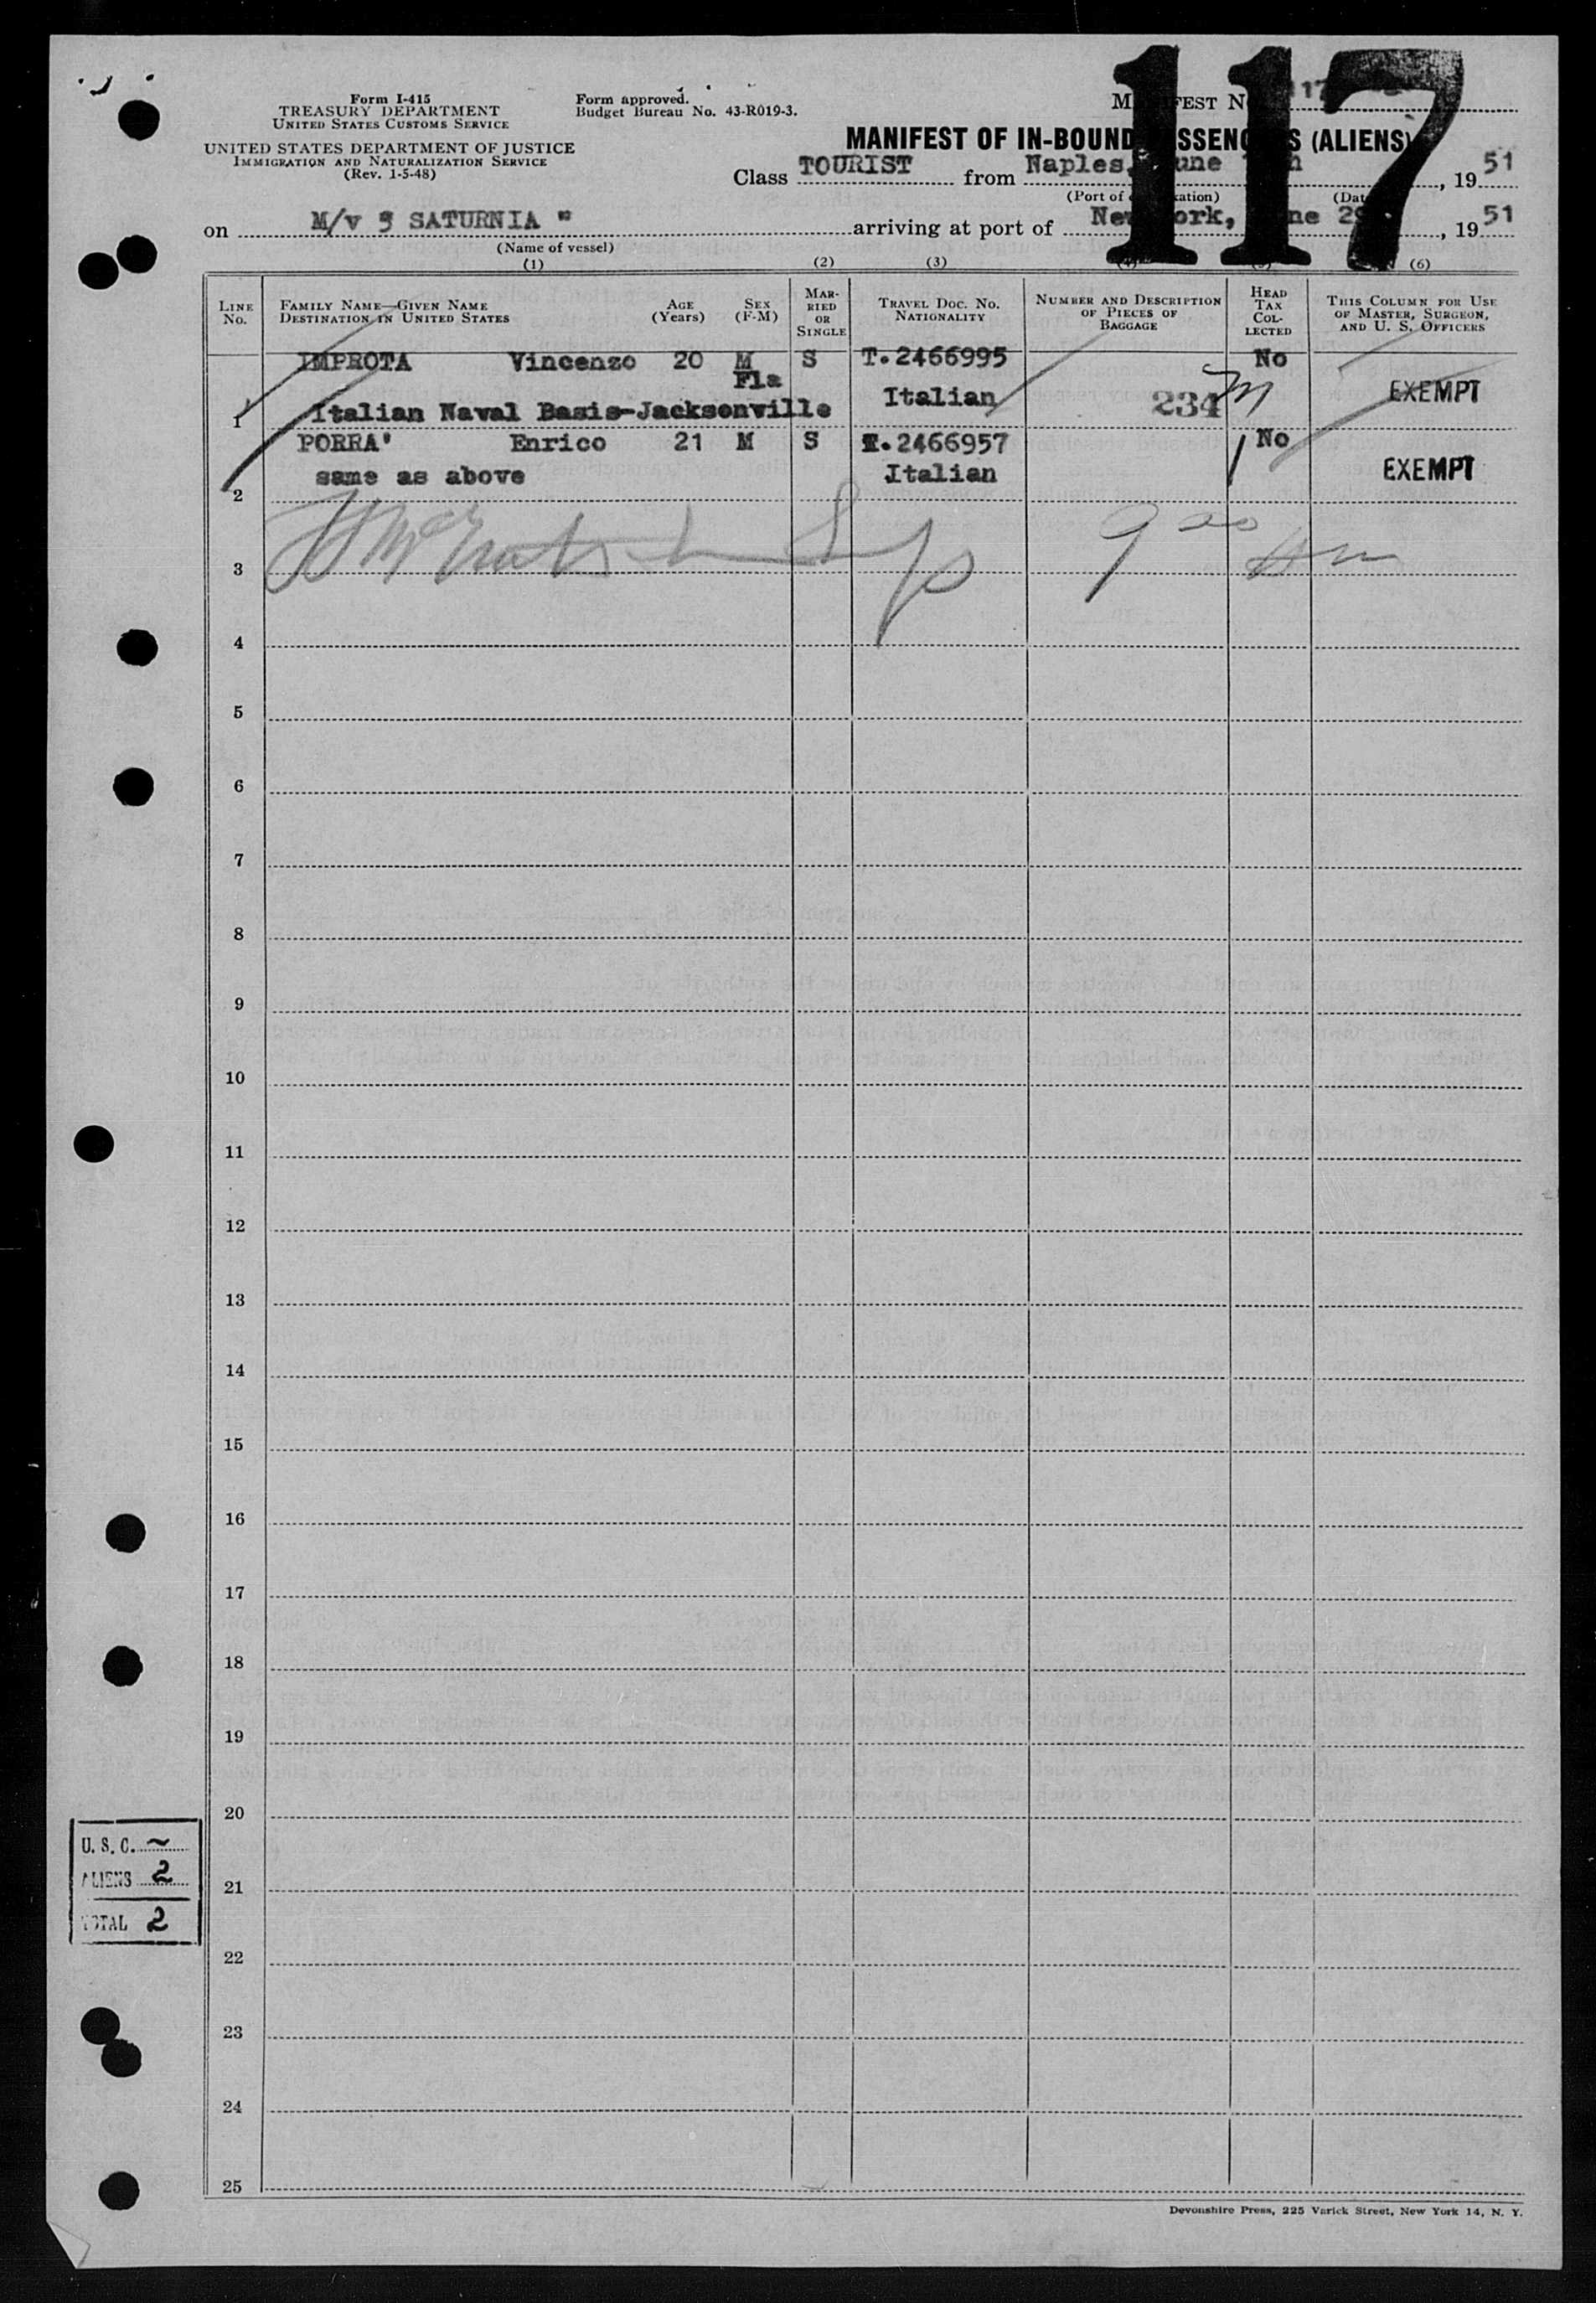 117
Form I-415
TREASURY DEPARTMENT
UNITED STATES CUSTOMS SERVICE
UNITED STATES DEPARTMENT OF JUSTICE
IMMIGRATION AND NATURALIZATION SERVICE
(Rev. 1-5-48)
Form approved.
Budget Bureau No. 43-R019-3.
MANIFEST OF IN-BOUND PASSENGERS (ALIENS)
Class TOURIST from Naples, June 51
(Port of embarkation) (Date) , 19
on M/v " SATURNIA " arriving at port of New York, June 29 , 19 51
(Name of vessel)
(1) (2) (3) (4) (5) (6)
LINE No. FAMILY NAME—GIVEN NAME DESTINATION IN UNITED STATES AGE (Years) SEX (F-M) MARRIED OR SINGLE TRAVEL DOC. NO. NATIONALITY NUMBER AND DESCRIPTION OF PIECES OF BAGGAGE HEAD TAX COLLECTED THIS COLUMN FOR USE OF MASTER, SURGEON, AND U. S. OFFICERS
IMPROTA Vincenzo 20 M S T.2466995 No
Fla
1 Italian Naval Basis-Jacksonville Italian 234 EXEMPT
PORRA' Enrico 21 M S T.2466957 No
same as above Italian EXEMPT
2
3
4
5
6
7
8
9
10
11
12
13
14
15
16
17
18
19
20
U. S. C. ~
ALIENS 2
TOTAL 2
21
22
23
24
25
Devonshire Press, 225 Varick Street, New York 14, N. Y.